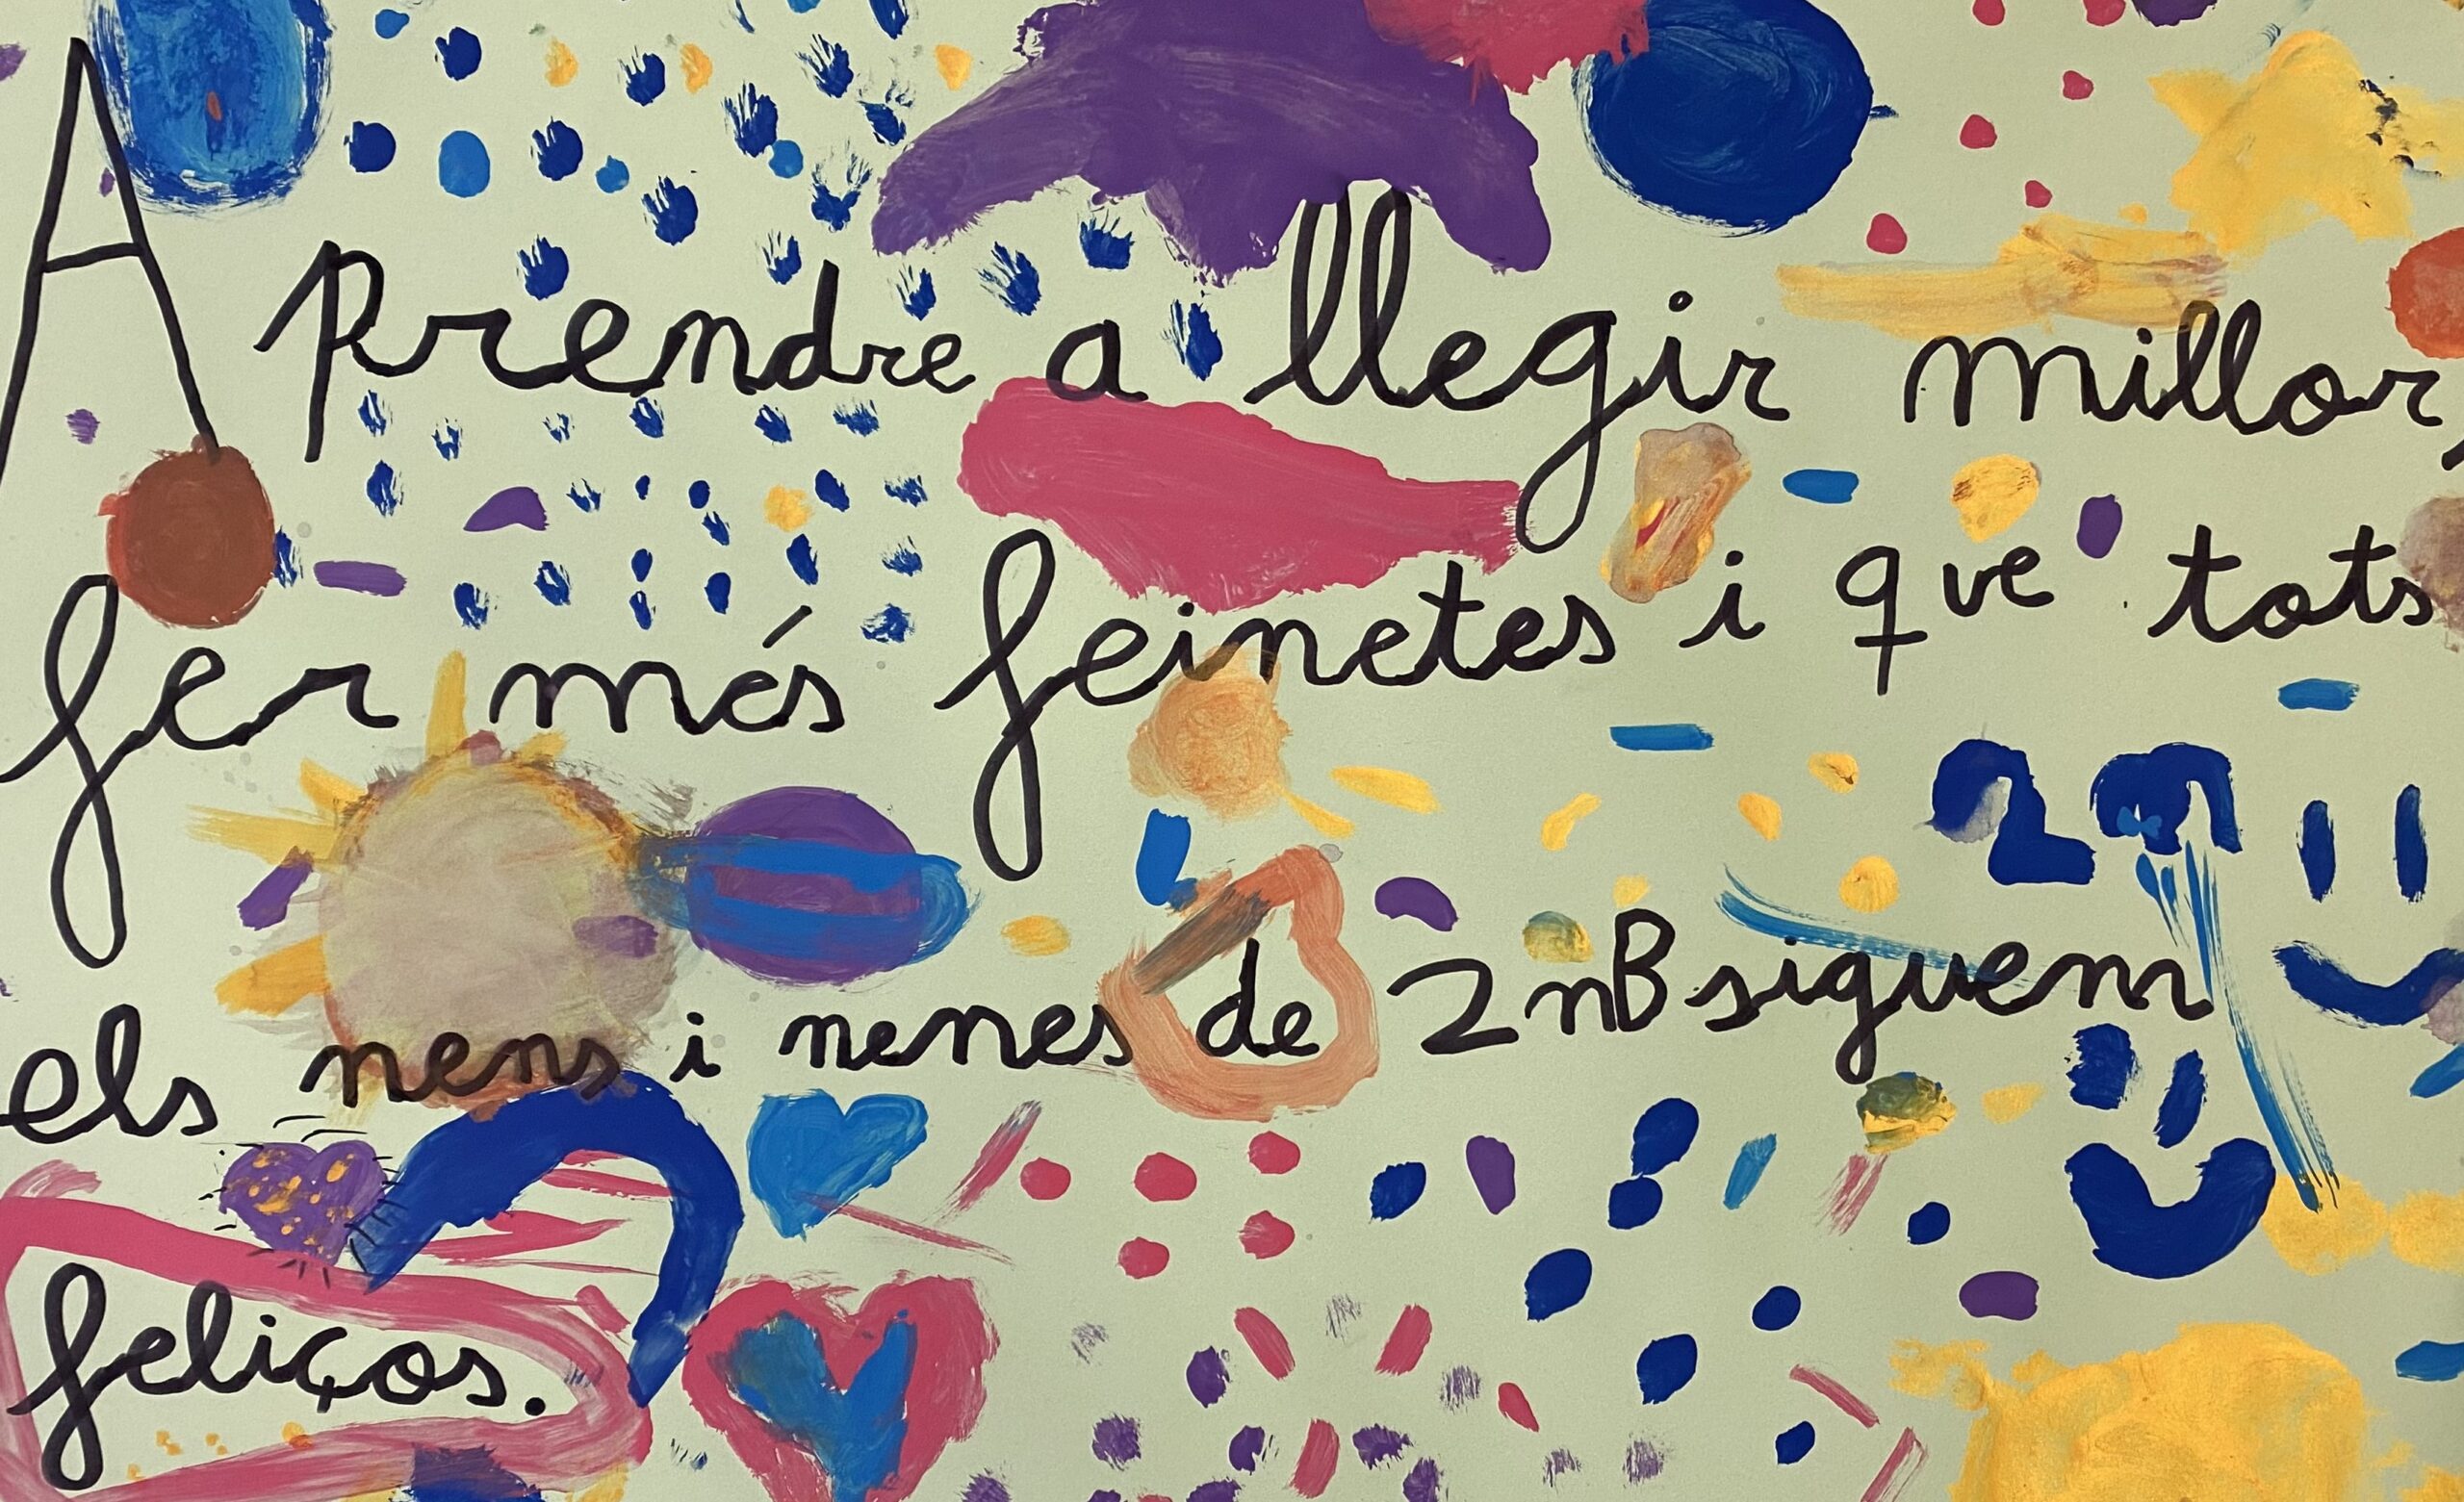 Aprendre a llegir millor,
fer més feinetes i que tots
els nens i nenes de 2nB siguem
feliços.